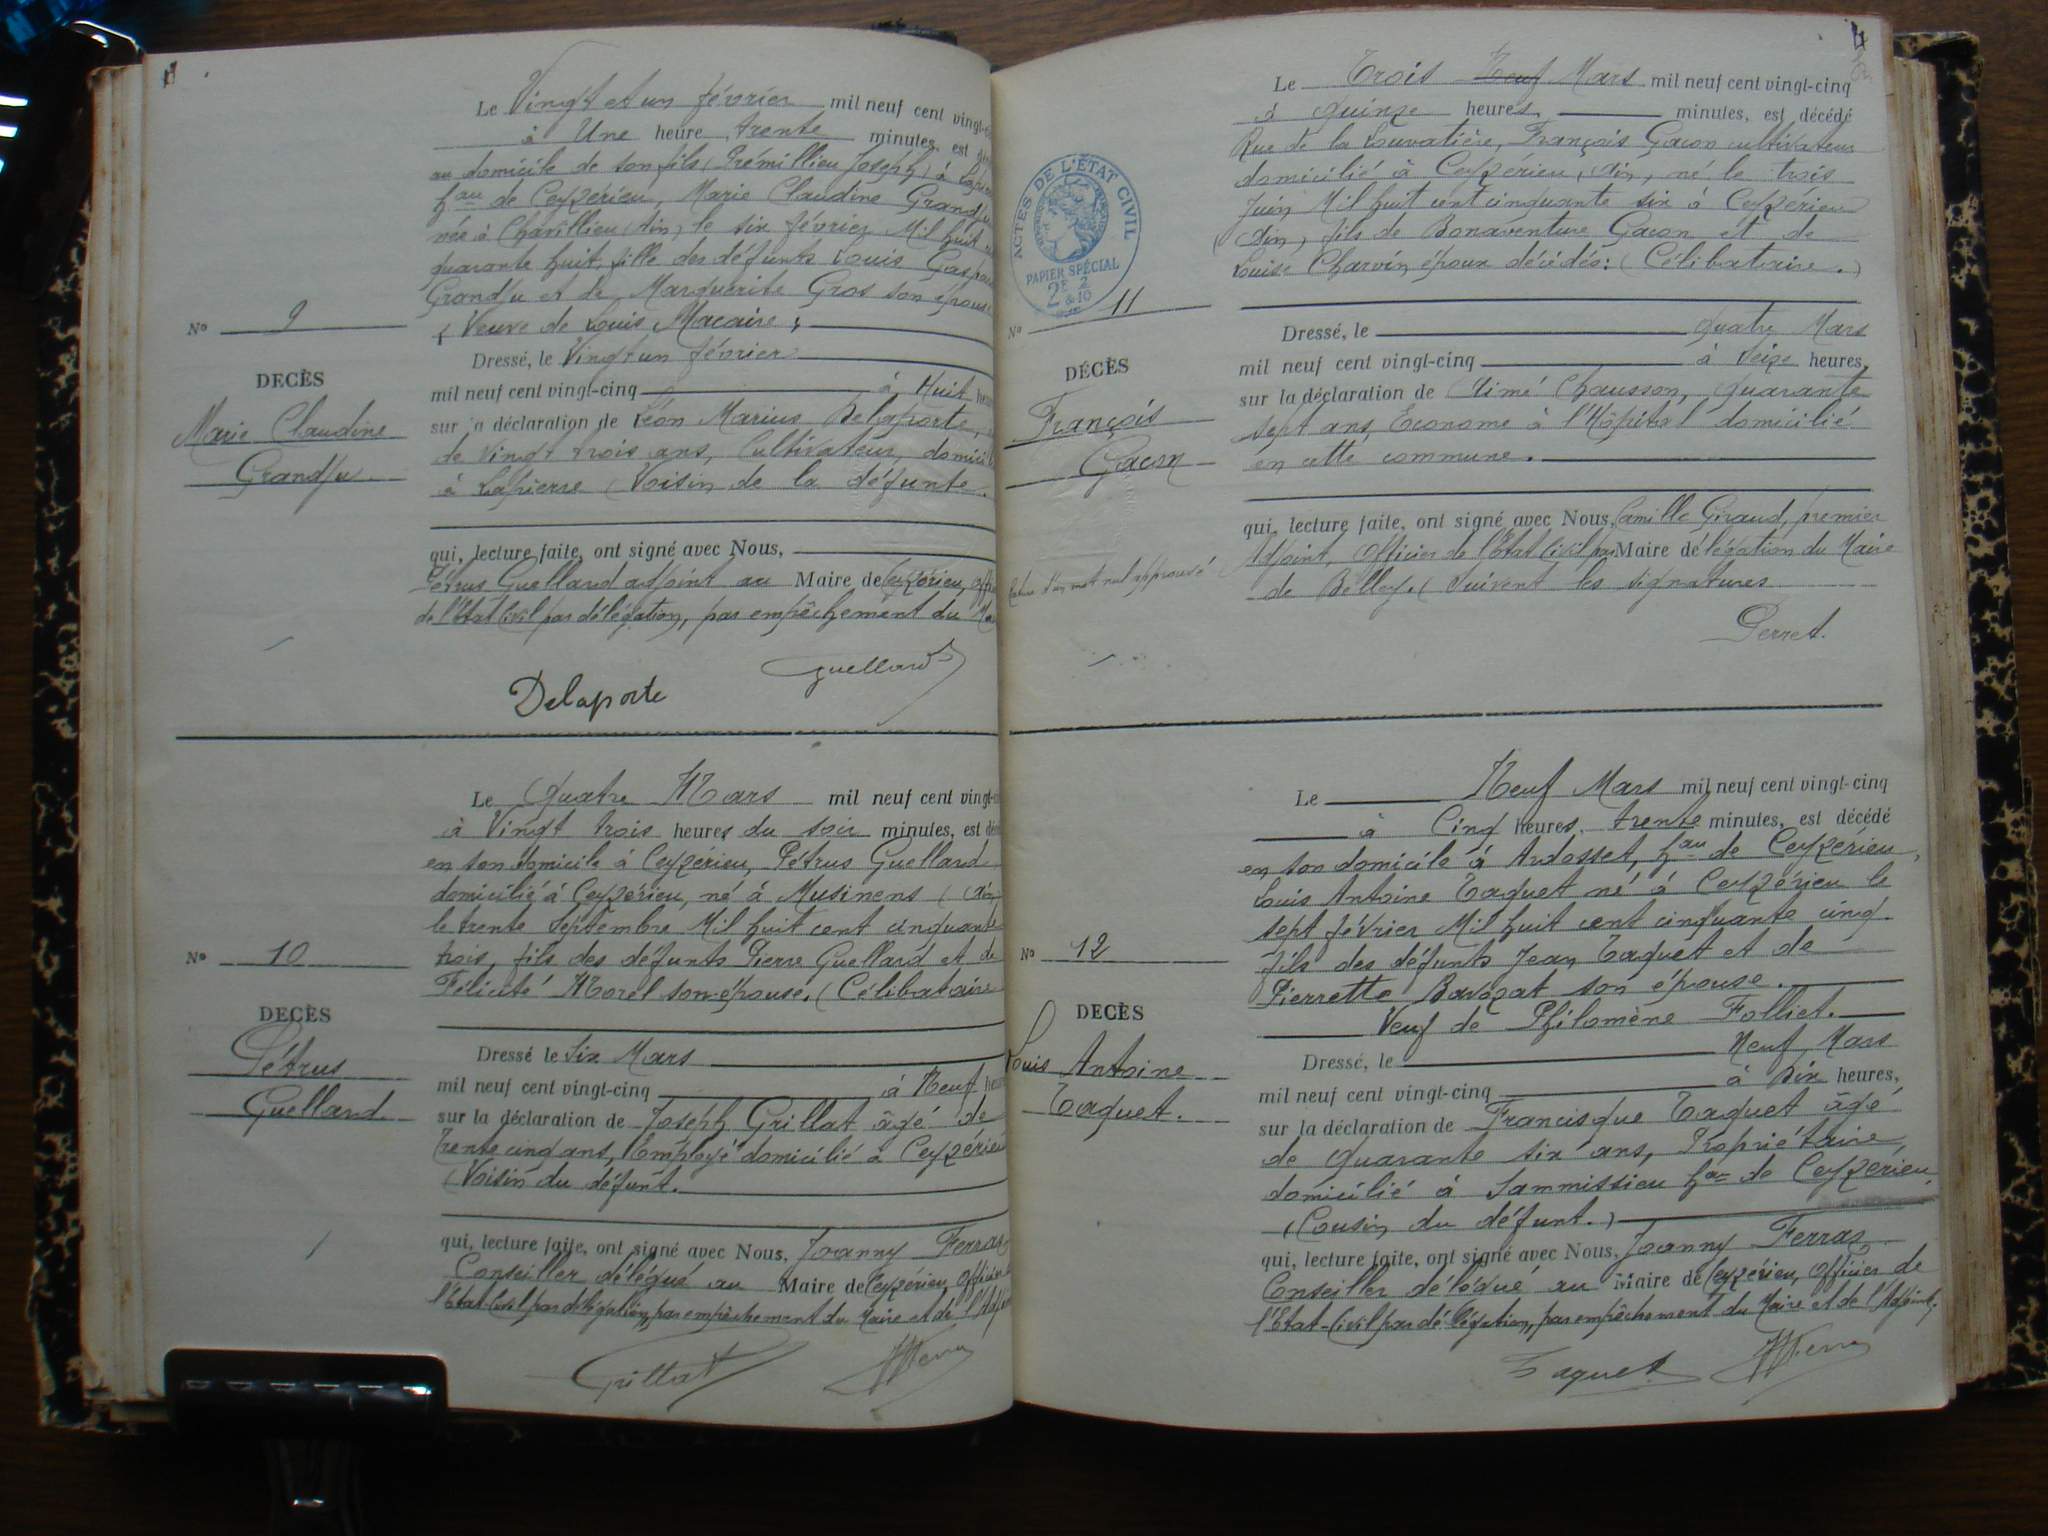 Le Vingt et un février mil neuf cent vingt-
à Une heure trente minutes, est
au domicile de son fils (Prémillieu Joseph) à
hau de Ceyzérieu, Marie Claudine Grand
née à Chavillieu (Ain) le six février Mil huit
quarante huit, fille des défunts Louis
et de Marguerite Gros son épouse
(Veuve de Louis Macaire)
No 9
DECÈS
Marie Claudine
Dressé, le Vingt un février
mil neuf cent vingt-cinq à Huit
sur la déclaration de Léon Marius Delaporte,
de Vingt trois ans, Cultivateur,
à Lapierre (Voisin de la défunte.
qui, lecture faite, ont signé avec Nous,
Pétrus Guelland adjoint au Maire de Ceyzérieu,
de l'Etat Civil par délégation, par empêchement du
Guelland
Delaporte
Le Quatre Mars mil neuf cent
à Vingt trois heures du soir minutes, est
en son domicile à Ceyzérieu, Pétrus Guelland
domicilié à Ceyzérieu, né à Musinens (Ain)
le trente Septembre Mil huit cent cinquante
trois, fils des défunts Pierre Guelland et de
Félicité Morel son épouse. (Célibataire
No 10
DECÈS
Pétrus
Guelland
Dressé le Six Mars
mil neuf cent vingt-cinq à Neuf
sur la déclaration de Joseph Grillat âgé de
Trente cinq ans, Employé domicilié à Ceyzérieu
(Voisin du défunt.
qui, lecture faite, ont signé avec Nous, Joanny Ferraz
Conseiller délégué au Maire de Ceyzérieu, Officier
l'Etat-Civil par délégation, par empêchement du Maire et de
Grillat
4
Le Trois Neuf Mars mil neuf cent vingt-cinq
à quinze heures, minutes, est décédé
Rue de la Louvatière, François Gacon cultivateur
domicilié à Ceyzérieu, Ain, né le trois
Juin Mil huit cent cinquante six à Ceyzérieu
(Ain), fils de Bonaventure Gacon et de
Louise Charvin époux décédés: (Célibataire.)
ACTES DE L'ÉTAT CIVIL
PAPIER SPÉCIAL
No 11
DÉCÈS
François
Gacon
Dressé, le quatre Mars
mil neuf cent vingt-cinq à seize heures,
sur la déclaration de Aimé Chausson, quarante
sept ans, Econome à l'Hôpital domicilié
en cette commune.
qui, lecture faite, ont signé avec Nous, Camille Giraud, premier
Adjoint, Officier de l'Etat Civil par Maire délégation du Maire
de Belley. (Suivent les signatures
Rature d'un mot nul approuvé
Perret.
Le Neuf Mars mil neuf cent vingt-cinq
à Cinq heures, trente minutes, est décédé
en son domicile à Ardosset, hau de Ceyzérieu,
Louis Antoine Taquet né à Ceyzérieu le
sept février Mil huit cent cinquante cinq.
fils des défunts Jean Taquet et de
Pierrette Bavozat son épouse.
Veuf de Philomène Folliet.
No 12
DECÈS
Louis Antoine
Taquet.
Dressé, le Neuf Mars
mil neuf cent vingt-cinq à Dix heures,
sur la déclaration de Francisque Taquet âgé
de quarante six ans, Propriétaire,
domicilié à Sammissieu hau de Ceyzérieu,
(Cousin du défunt.)
qui, lecture faite, ont signé avec Nous, Joanny Ferraz
Conseiller délégué au Maire de Ceyzérieu, Officier de
l'Etat-Civil par délégation, par empêchement du Maire et de l'Adjoint.
Taquet